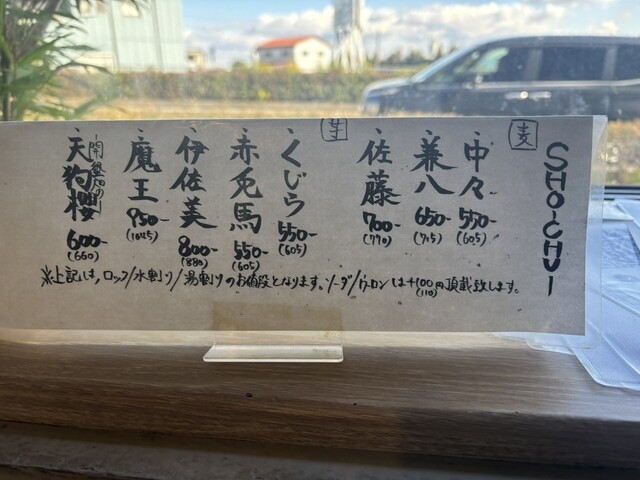 SHO-CHU
麦
・中々
550-
(605)
・兼八
650-
(715)
・佐藤
700-
(770)
芋
・くじら
550-
(605)
・赤兎馬
550-
(605)
・伊佐美
800-
(880)
・魔王
950-
(1045)
・天狗櫻
600-
(660)
※上記は、ロック/水割り/湯割りのお値段となります。ソーダ/ウーロンは+100円頂戴致します。
(110)